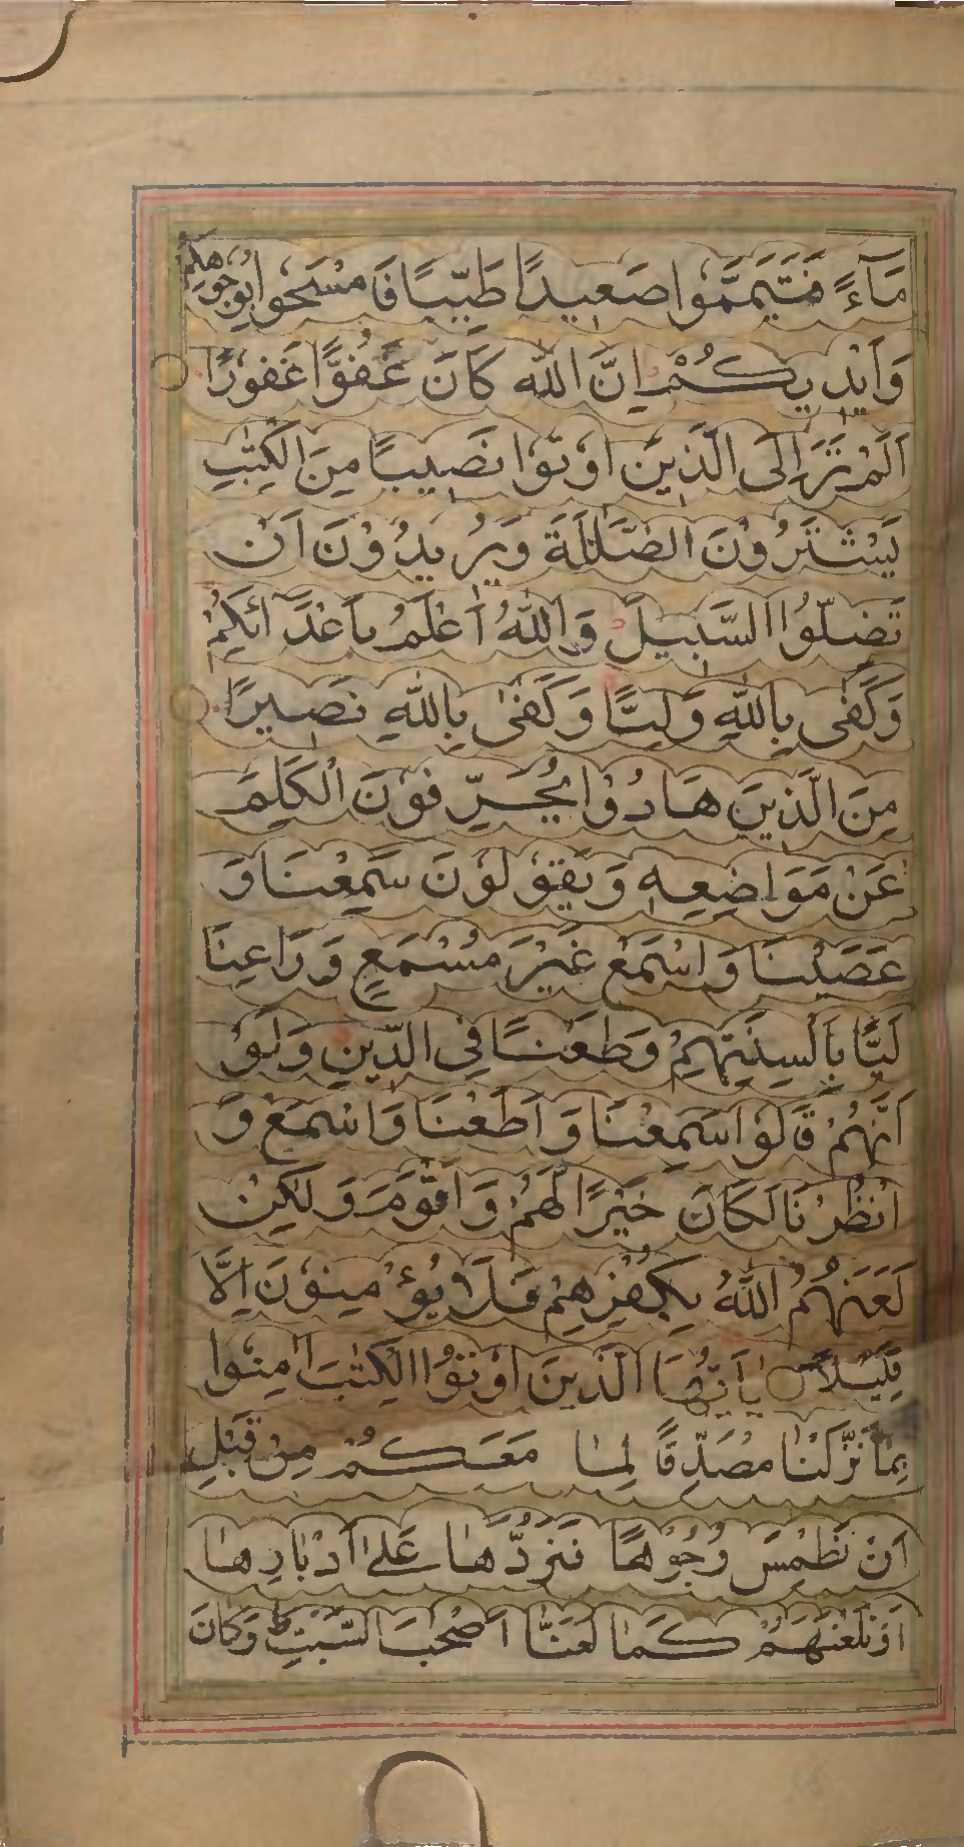 مَآءً فَتَيَمَّمُوا صَعِيدًا طَيِّبًا فَامْسَحُوا بِوُجُوهِكُمْ
وَاَيْدِيكُمْ اِنَّ اللّٰهَ كَانَ عَفُوًّا غَفُورًا
اَلَمْ تَرَ اِلَى الَّذِينَ اُوْتُوْا نَصِيبًا مِنَ الْكِتٰبِ
يَشْتَرُوْنَ الضَّلٰلَةَ وَيُرِيدُوْنَ اَنْ
تَضِلُّوا السَّبِيلَ وَاللّٰهُ اَعْلَمُ بِاَعْدَآئِكُمْ
وَكَفٰى بِاللّٰهِ وَلِيًّا وَكَفٰى بِاللّٰهِ نَصِيرًا
مِنَ الَّذِينَ هَادُوْا يُحَرِّفُوْنَ الْكَلِمَ
عَنْ مَوَاضِعِهٖ وَيَقُوْلُوْنَ سَمِعْنَا وَ
عَصَيْنَا وَاسْمَعْ غَيْرَ مُسْمَعٍ وَرَاعِنَا
لَيًّا بِاَلْسِنَتِهِمْ وَطَعْنًا فِى الدِّينِ وَلَوْ
اَنَّهُمْ قَالُوْا سَمِعْنَا وَاَطَعْنَا وَاسْمَعْ وَ
انْظُرْنَا لَكَانَ خَيْرًا لَهُمْ وَاَقْوَمَ وَلٰكِنْ
لَعَنَهُمُ اللّٰهُ بِكُفْرِهِمْ فَلَا يُؤْمِنُوْنَ اِلَّا
قَلِيْلًا يٰاَيُّهَا الَّذِينَ اُوْتُوْا الْكِتٰبَ اٰمِنُوا
بِمَا نَزَّلْنَا مُصَدِّقًا لِمَا مَعَكُمْ مِنْ قَبْلِ
اَنْ نَطْمِسَ وُجُوْهًا فَنَرُدَّهَا عَلٰى اَدْبَارِهَا
اَوْ نَلْعَنَهُمْ كَمَا لَعَنَّا اَصْحٰبَ السَّبْتِ وَكَانَ